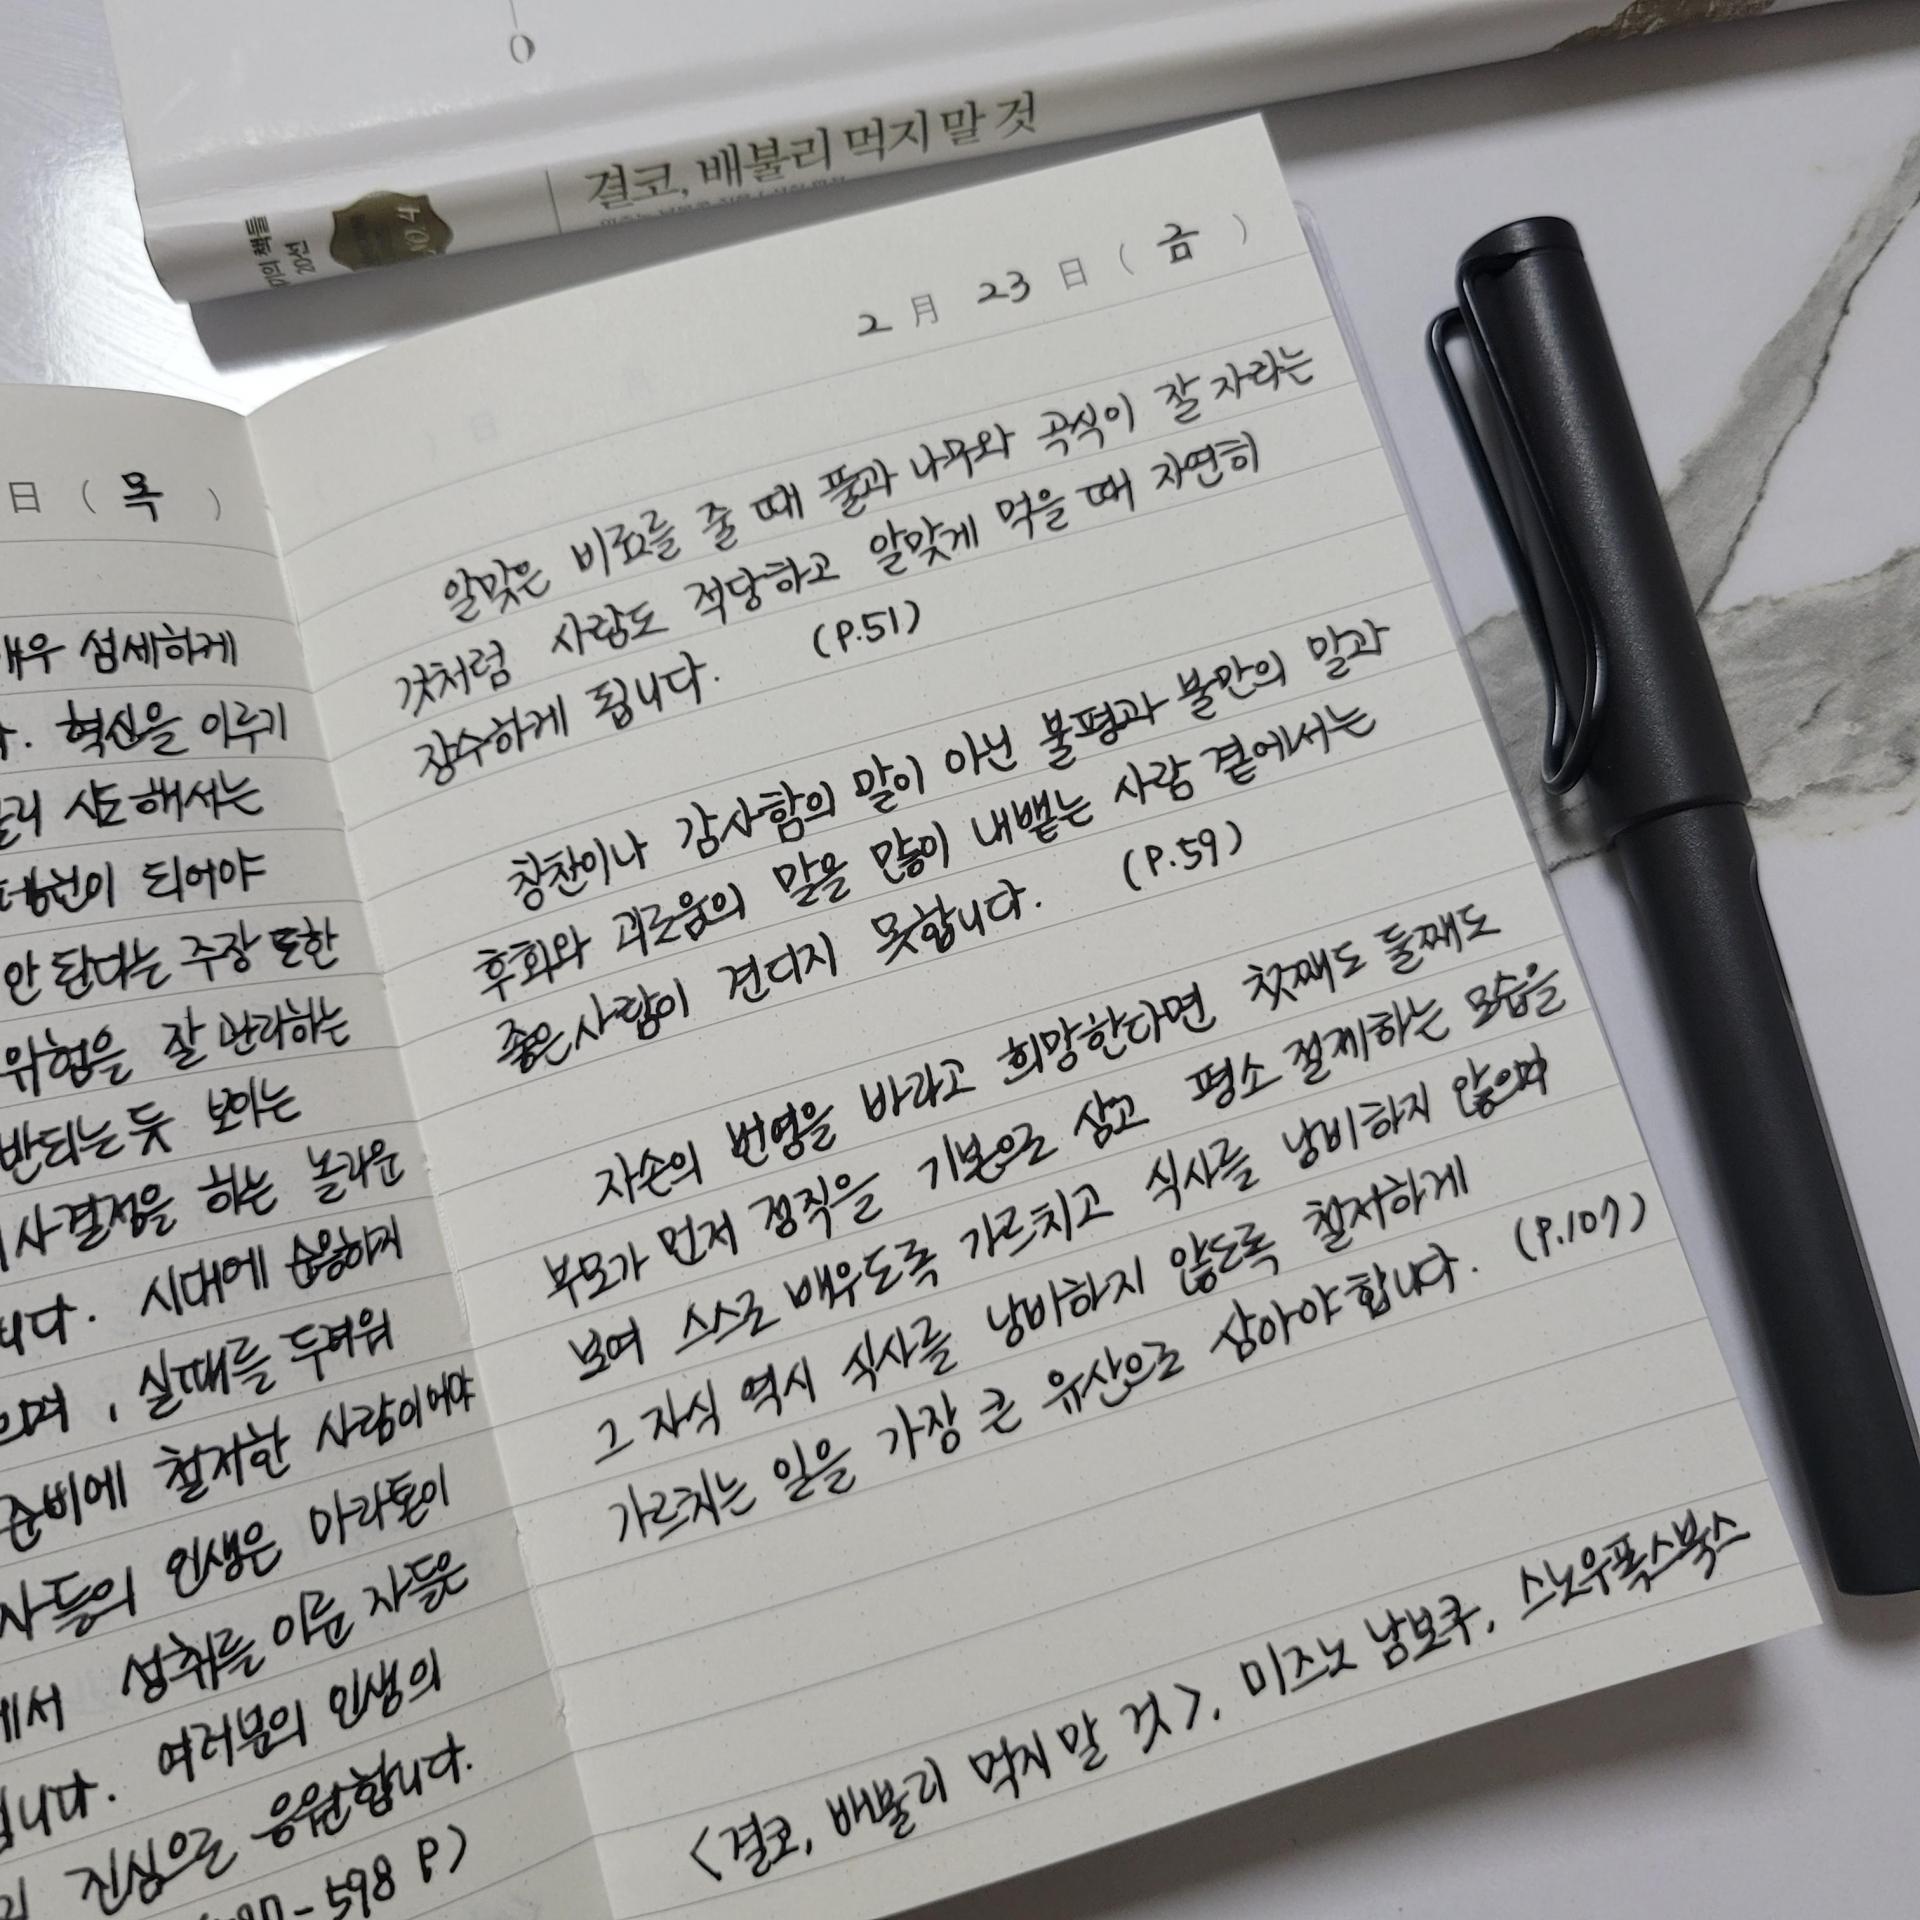 결코, 배불리 먹지 말 것
20선
日 ( 목 )
섬세하게
혁신을 이루기
해서는
되어야
안 된다는 주장 또한
위험을 잘 관리하는
반되는 듯 보이는
사결정을 하는 놀라운
니다. 시대에 순응하지
으며, 실패를 두려워
준비에 철저한 사람이어야
자들의 인생은 마라톤이
에서 성취를 이룬 자들은
입니다. 여러분의 인생의
진심으로 응원합니다.
598 P)
2 月 23 日 ( 금 )
알맞은 비료를 줄 때 풀과 나무와 곡식이 잘 자라는
것처럼 사람도 적당하고 알맞게 먹을 때 자연히
장수하게 됩니다. (P.51)
칭찬이나 감사함의 말이 아닌 불평과 불만의 말과
후회와 괴로움의 말을 많이 내뱉는 사람 곁에서는
좋은 사람이 견디지 못합니다. (P.59)
자손의 번영을 바라고 희망한다면 첫째도 둘째도
부모가 먼저 정직을 기본으로 삼고 평소 절제하는 모습을
보여 스스로 배우도록 가르치고 식사를 낭비하지 않으며
그 자식 역시 식사를 낭비하지 않도록 철저하게
가르치는 일을 가장 큰 유산으로 삼아야 합니다. (P.107)
<결코, 배불리 먹지 말 것>, 미즈노 남보쿠, 스노우폭스북스